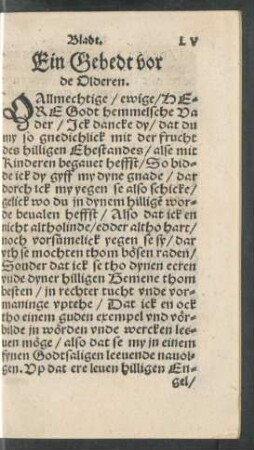 Bladt. LV
Ein Gebedt vor
de Olderen.
O Allmechtige / ewige / HE-
RE Godt hemmelsche Va
der / Jck dancke dy / dat du
my so gnedichlick mit der frucht
des hilligen Ehestandes / alse mit
Kinderen begauet heffst / So bid-
de ick dy gyff my dyne gnade / dar
dorch ick my yegen se also schicke /
gelick wo du jn dynem hilligē wor-
de beualen heffst / Also dat ick en
nicht altholinde / edder altho hart /
noch vorsümelick yegen se sy / dar
vth se mochten thom bösen raden /
Sonder dat ick se tho dynen eeren
vnde dyner hilligen Gemene thom
besten / jn rechter tucht vnde vor-
maninge vptehe / Dat ick en ock
tho einem guden exempel vnd vör-
bilde jn wörden vnde wercken leu-
uen möge / also dat se my jn einem
fynen Godtsaligen leeuende nauol-
gen. Vp dat ere leuen hilligen En-
gel /